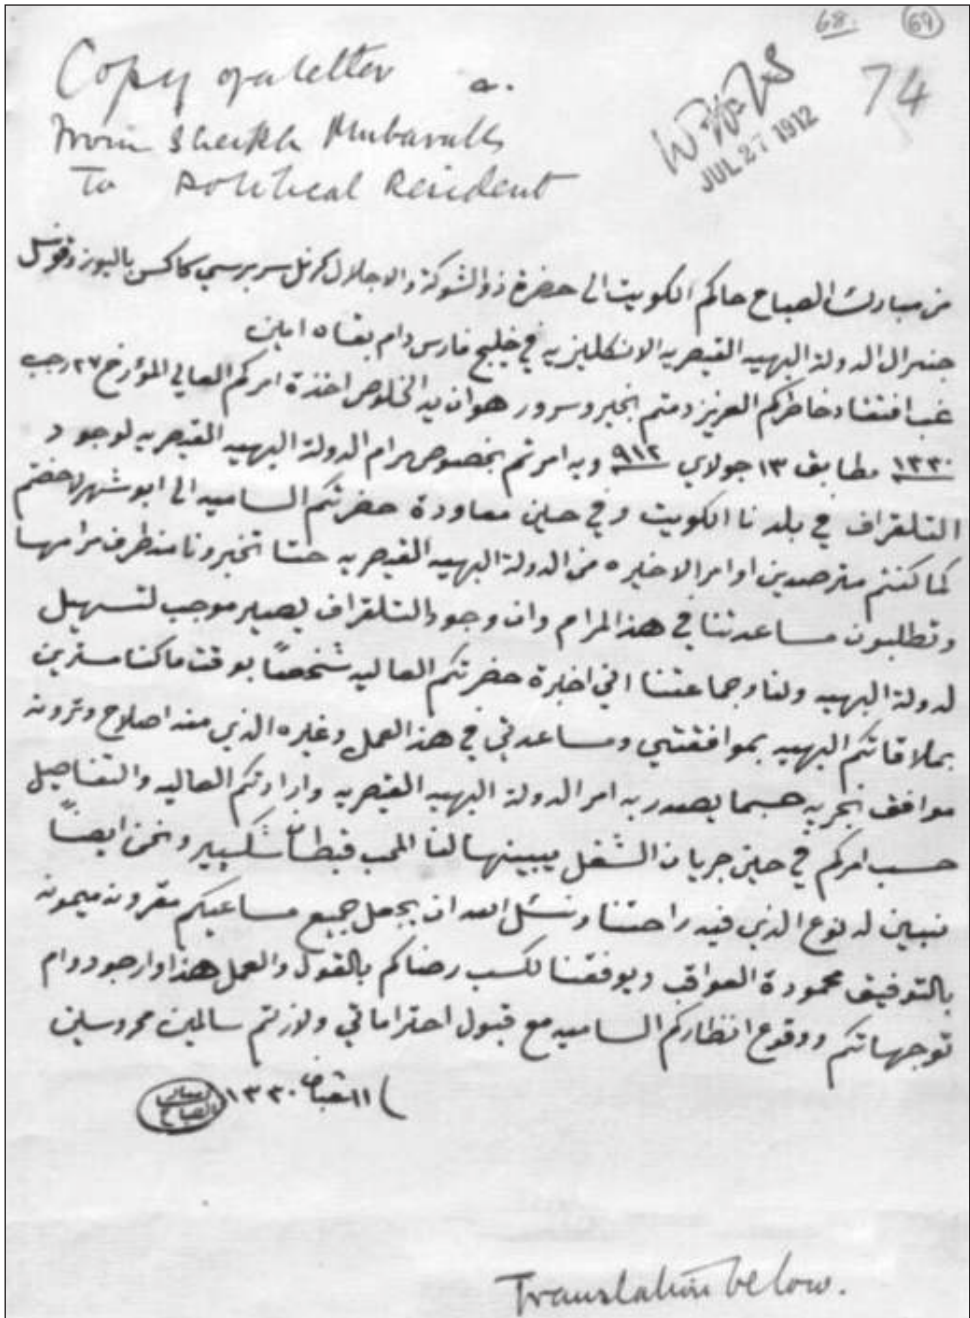 68. 69
74
Copy of a letter
From Sheikh Mubarak
To Political Resident
JUL 27 1912
من مبارك الصباح حاكم الكويت الى حضرة ذو الشوكة والاجلال كرنل سر برسي كاكس باليوز وقونسل
جنرال الدولة البهيه القيصريه الانكليزيه في خليج فارس دام بقاه امين
غب افتقاد خاطركم العزيز دمتم بخير وسرور هو ان يد الخلوص اخذة امركم العالي المؤرخ ٢٧ رجب
١٣٣٠ مطابق ١٣ جولاي ٩١٢ وبه امرتم بخصوص مرام الدولة البهيه القيصريه لوجود
التلقراف في بلدنا الكويت وفي حين معاودة حضرتكم الساميه الى ابوشهر
كما كنتم مترصدين اوامر الاخيره من الدولة البهيه القيصريه حتا تخبرونا من طرف مرامها
وتطلبون مساعدتنا في هذا المرام وان وجود التلقراف يصير موجب لتسهيل
لدولة البهيه ولنا وجماعتنا اني اخبرة حضرتكم العاليه شخصًا بوقت ما كنا مسترين
بملاقاتكم البهيه بموافقتي ومساعدتي في هذا العمل وغيره الذي منه اصلاح وترونه
موافق نجريه حسبما يصدر به امر الدولة البهيه القيصريه وارادتكم العاليه والتفاصيل
حسب امركم في حين جريان الشغل يبينها لنا المحب قبطان شكسبير ونحن ايضًا
نبين له نوع الذي فيه راحتنا ونسئل الله ان يجعل جميع مساعيكم مقرونه ميمونه
بالتوفيق محمودة العواقب ويوفقنا لكسب رضاكم بالقول والعمل هذا وارجو دوام
توجهاتكم ووقوع انظاركم الساميه مع قبول احتراماتي ولازلتم سالمين محروسين
١١ شعبان ١٣٣٠
مبارك الصباح
Translation below.